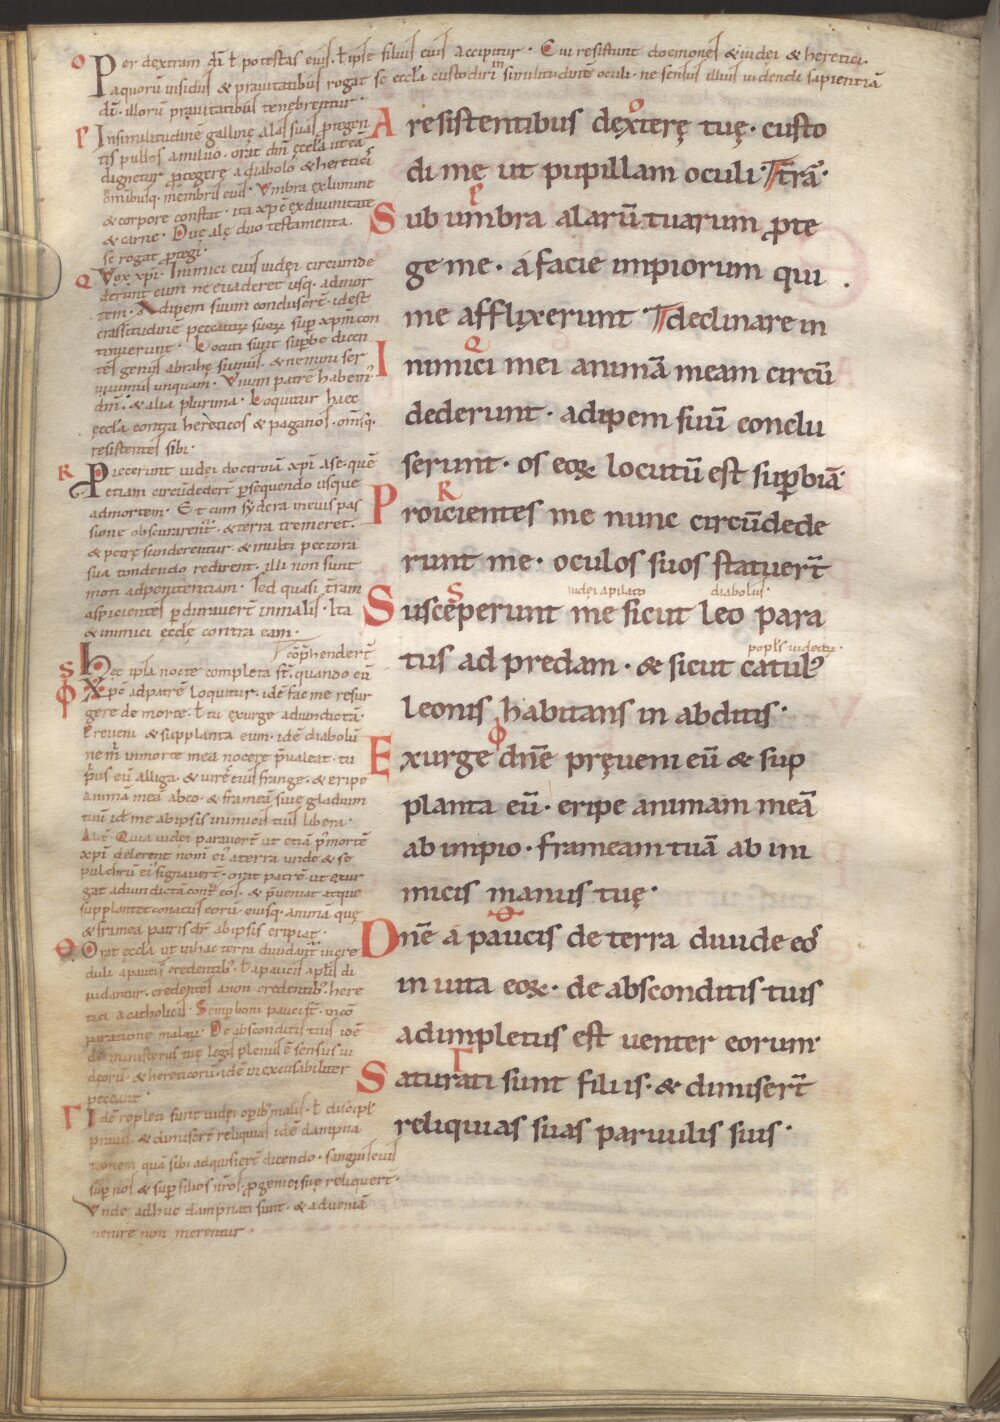 Per dextram dī ł potestas eius. ł ipse filius eius accipitur. Cui resistunt doemones & iudei & heretici.
a quorū insidiis & prauitatibus rogat se ecclā custodiri in similitudinē oculi. ne sensus illius uidendi sapientiā
dī. illorū prauitatibus tenebrentur.
In similitudinē gallinę alas suas protegen
tis pullos a miluo. orat dnī ęcclā ut eā
dignetur protegere a diabolo & hereticis
omnibusq. membris eius. Vmbra ex lumine
& corpore constat. ita xpc̄ ex diuinitate
& carne. Due alę duo testamenta.
sē rogat protegi.
Vox xpī. Inimici eius iudęi circumde
derunt eum ne euaderet usq. ad mor
tem. Adipem suum conclusert̄. id est
crassitudinē peccatorum suorum super xpm̄ con
tinuerunt. Locuti sunt superbe dicen
tes genus abrahę sumus. & nemini ser
uiuimus unquam. Vnum patrē habem̄
dm̄. & alia plurima. Loquitur haec
ęcclā contra hereticos & paganos. omnsq.
resistentes sibi.
Proiecerunt iudęi doctrinā xpī a se. quē
etiam circūdedert̄ persequendo usque
ad mortem. Et cum sydera in eius pas
sione obscurarentur. & terra tremeret.
& petrę scinderentur. & multi pectora
sua tundendo redirent. illi non sunt
moti ad penitentiam. sed quasi tr̄am
aspicientes perdurauert̄ in malis. Ita
& inimici ęcclę contra eam.
comp̄henderт̄
Hec ipsa nocte completa st̄. quando eū
Xpc̄ ad patrē loquitur. idē fac me resur
gere de morte. ł tu exurge ad uindictā.
Preueni & supplanta eum. idē diabolū
ne in morte mea nocere p̄ualeat. tu
p̄us eū alliga. & uires eius frange. & eripe
animā meā ab eo. & frameā siue gladium
tuū id ē me ab ipsis inimicis tuis libera.
Alit̄. Quia iudei parauert̄ ut etiā p̄ mortē
xpī delerent nom̄ ei' a terra unde & se
pulchrū ei' signauert̄. orat patrē ut exur
gat ad uindictā contra eos. & p̄ueniat atque
supplantet conatus eorū. eiusq. animā quę
& framea patris dr̄ ab ipsis eripiat.
Orat ecclā ut in hac terra diuidant̄ incre
duli a paucis credentib'. ł a paucis aplis di
uidantur. credentes a non credentib'. here
tici a catholicis. Semp boni pauci st̄. in cō
paratione malorum. De absconditis tuis idē
de ministeriis tuę legis plenus ē sensus iu
deorū. & hereticorū. idē inexcusabiliter
peccant.
Idē repleti sunt iudęi opib' malis. ł discipl'
prauis. & dimisert̄ reliquias idē dampna
tionem quā sibi adquisiert̄ dicendo. sanguis eius
super nos & super filios nr̄os. progeniei suę reliquert̄.
Vnde adhuc dampnati sunt. & ad ueniā
uenire non merentur.
A resistentibus dexterę tuę. custo
di me ut pupillam oculi. tr̄a.
Sub umbra alarū tuarum prote
ge me. a facie impiorum qui
me afflixerunt declinare in
Inimici mei animā meam circū
dederunt. adipem suū conclu
serunt. os eorum locutū est superbiā
Proicientes me nunc circūdede
runt me. oculos suos statuert̄
iudei a pilato diabolus.
Susceperunt me sicut leo para
popl's iudeorum.
tus ad predam. & sicut catul'
leonis habitans in abditis.
Exurge dnē pręueni eū & sup
planta eū. eripe animam meā
ab impio. frameam tuā ab ini
micis manus tuę.
Dnē a paucis de terra diuide eos
in uita eorum. de absconditis tuis
adimpletus est uenter eorum.
Saturati sunt filiis. & dimisert̄
reliquias suas paruulis suis.